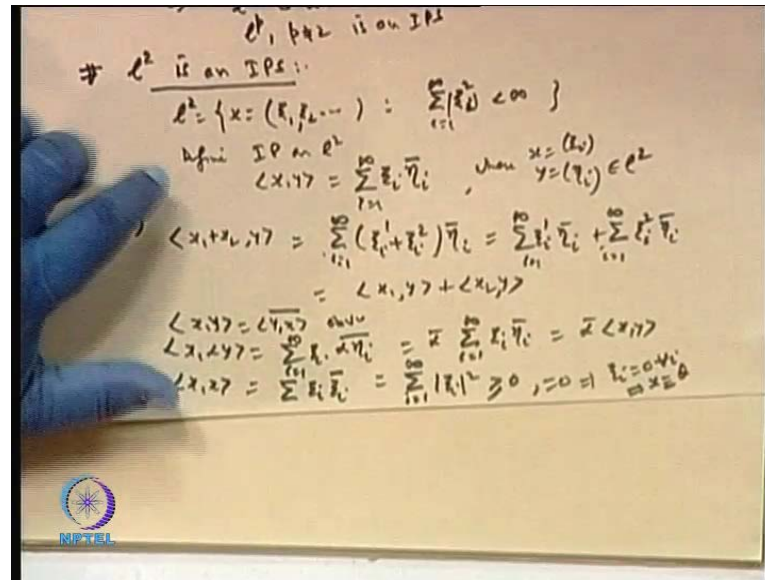 ℓᵖ, p≠2 is an IPS
# ℓ² is an IPS:.
ℓ² = { x = (ξ₁, ξ₂ ... ) : ∑_{i=1}^∞ |ξᵢ|² < ∞ }
Define IP on ℓ²
<x,y> = ∑_{i=1}^∞ ξᵢ η̄ᵢ , when x = (ξᵢ) y = (ηᵢ) ∈ ℓ²
) <x₁+x₂,y> = ∑_{i=1}^∞ (ξᵢ¹+ξᵢ²) η̄ᵢ = ∑_{i=1}^∞ ξᵢ¹ η̄ᵢ + ∑_{i=1}^∞ ξᵢ² η̄ᵢ
= <x₁,y> + <x₂,y>
<x,y> = \overline{<y,x>}
<x,αy> = ∑_{i=1}^∞ ξᵢ \overline{αηᵢ} = ᾱ ∑_{i=1}^∞ ξᵢ η̄ᵢ = ᾱ <x,y>
<x,x> = ∑ ξᵢ ξ̄ᵢ = ∑_{i=1}^∞ |ξᵢ|² ≥ 0 , =0 ⇒ ξᵢ=0 ∀i ⇒ x = θ
NPTEL